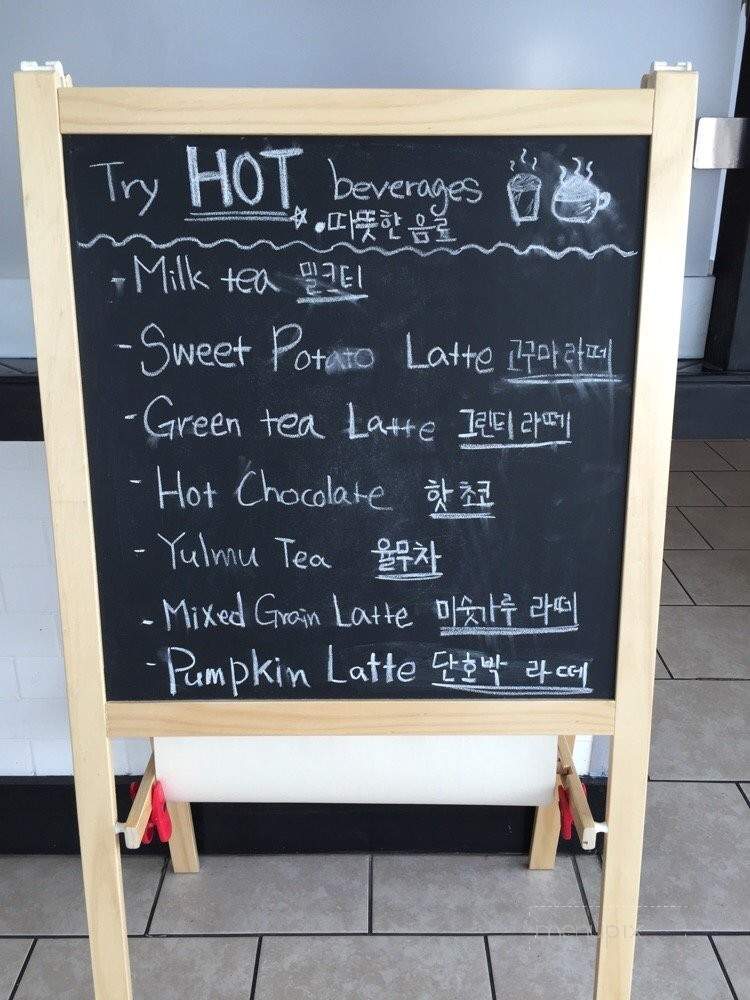 Try HOT beverages
☆ • 따뜻한 음료
- Milk tea 밀크티
- Sweet Potato Latte 고구마 라떼
- Green tea Latte 그린티 라떼
- Hot Chocolate 핫 초코
- Yulmu Tea 율무차
- Mixed Grain Latte 미숫가루 라떼
- Pumpkin Latte 단호박 라떼
menupix